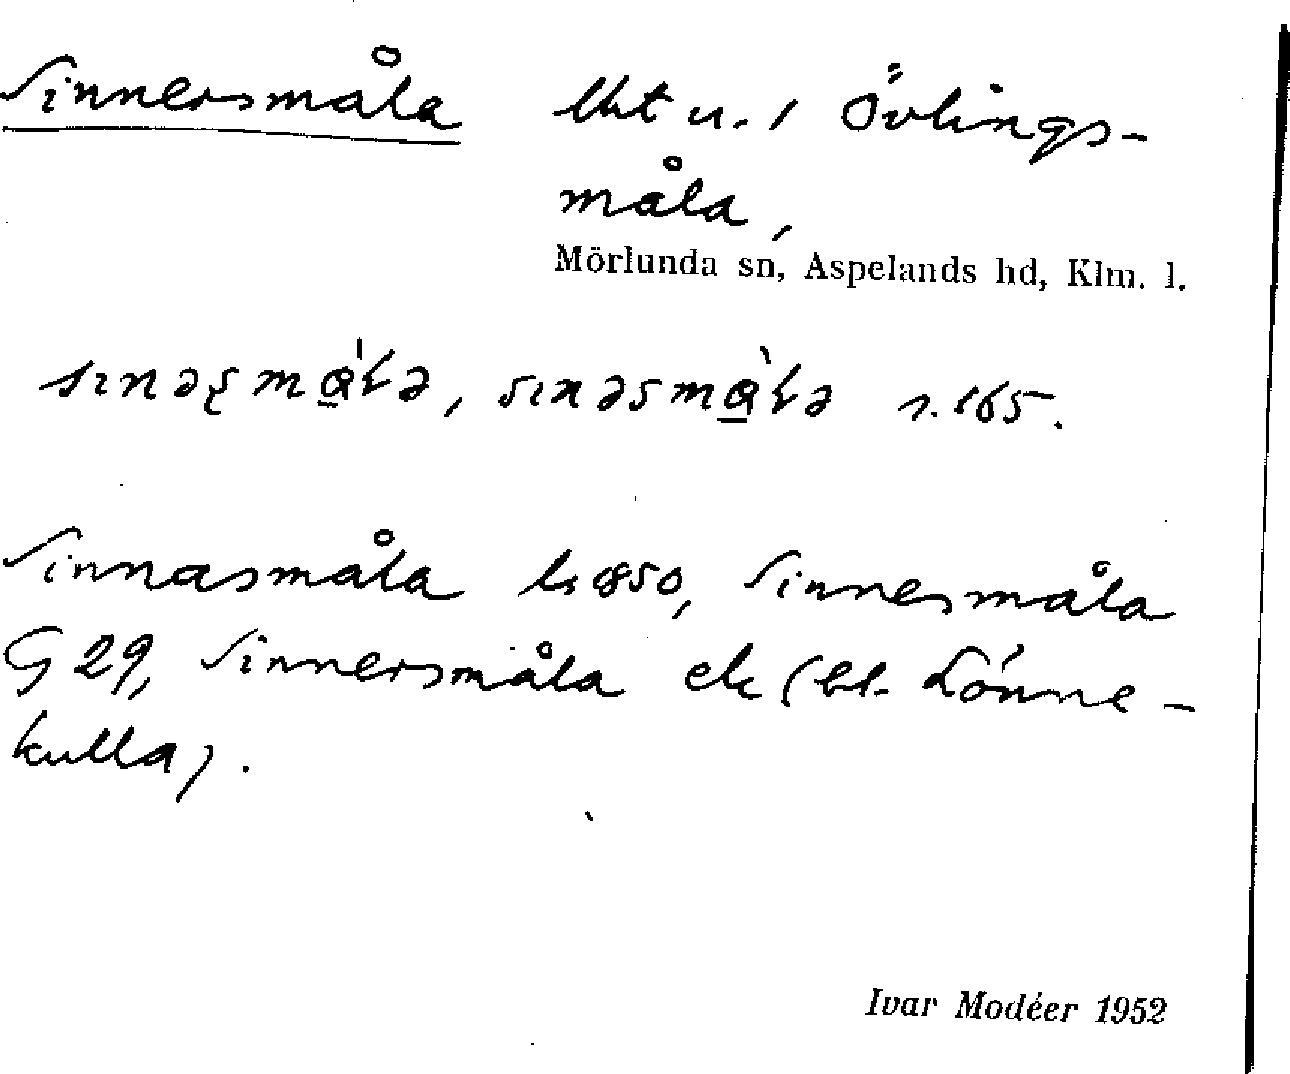 Sinnersmåla lht u. / Övlings-
måla,
Mörlunda sn, Aspelands hd, Klm. l.
sɪnəʂmὰ̲ɫə, sɪnəsmὰ̲ɫə s. 165.
Sinnasmåla k 1850, Sinnesmåla
G 29, Sinnersmåla ek (bl. Lönne-
kulla).
Ivar Modéer 1952